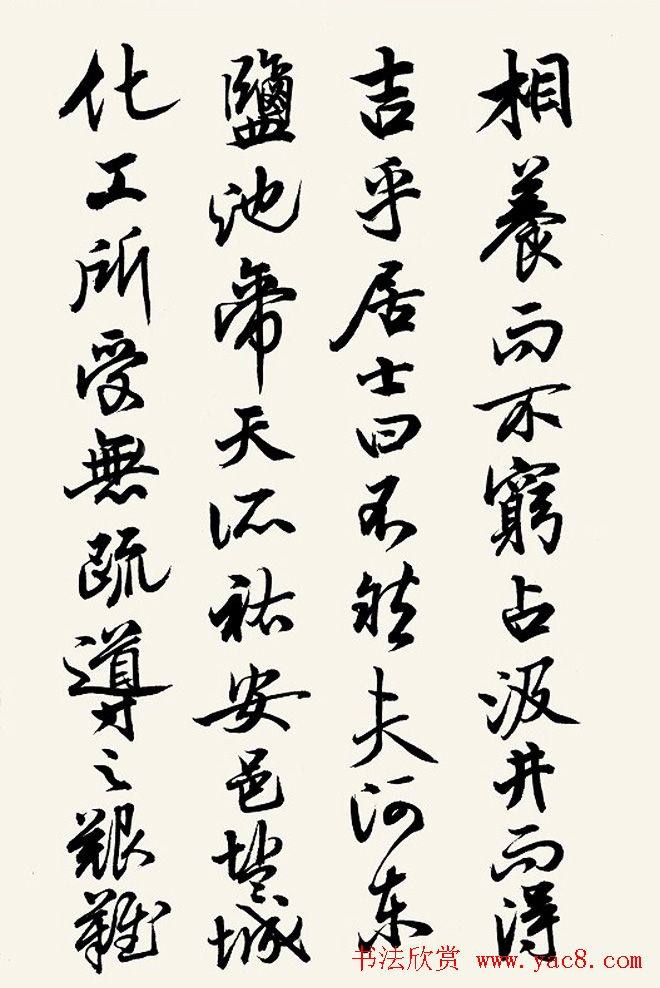 相養而不窮占汲井而得
吉乎居士曰不然夫河东
鹽池帝天祐安邑塩城
化工所受無疏導之艱難
书法欣赏 www.yac8.com